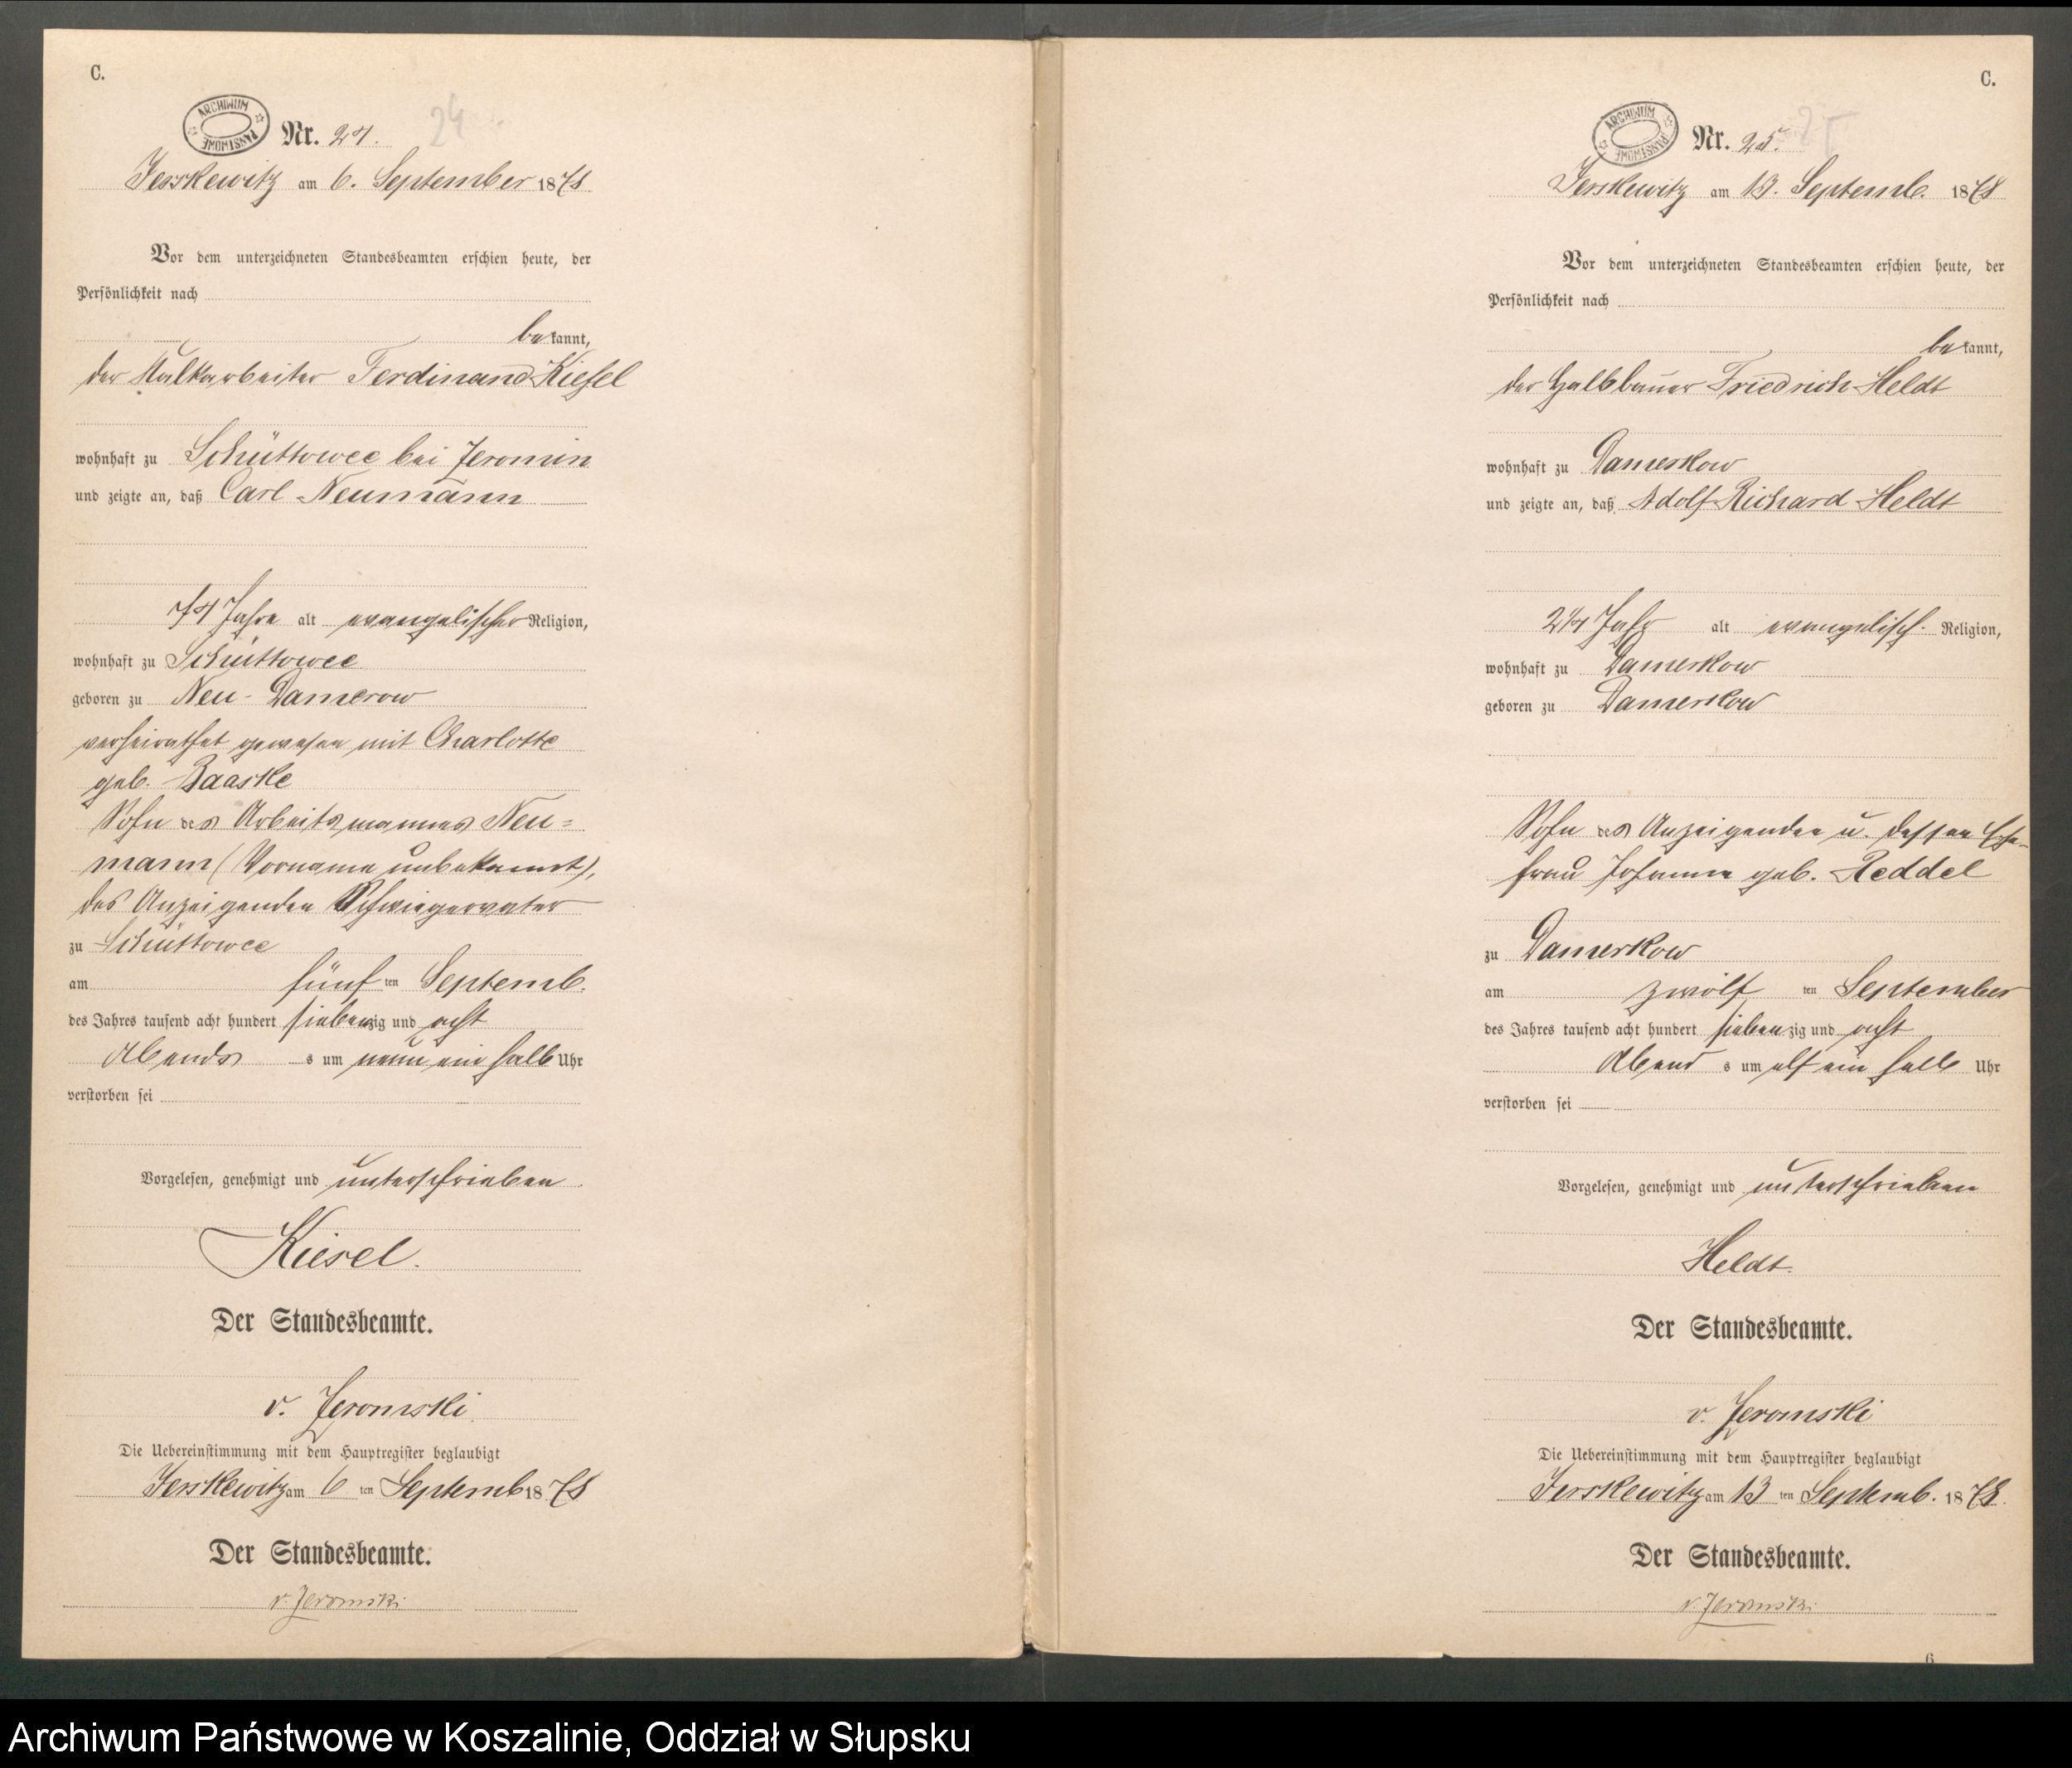 C.
ARCHIWUM PAŃSTWOWE
Nr. 24.
24
Jerskewitz am 6. September 1878
Vor dem unterzeichneten Standesbeamten erschien heute, der
Persönlichkeit nach
bekannt,
der Kalkarbeiter Ferdinand Kiesel
wohnhaft zu Schüttowce bei Jeromin
und zeigte an, daß Carl Neumann
74 Jahre alt evangelischer Religion,
wohnhaft zu Schüttowce
geboren zu Neu-Damerow
verheirathet gewesen mit Charlotte
geb. Baaske
Sohn des Arbeitsmannes Neu=
mann (Vorname unbekannt),
des Anzeigenden Schwiegervater
zu Schüttowce
am fünften Septemb.
des Jahres tausend acht hundert siebenzig und acht
Abends um neun ein halb Uhr
verstorben sei
Vorgelesen, genehmigt und unterschrieben
Kiesel.
Der Standesbeamte.
v. Jeromski
Die Uebereinstimmung mit dem Hauptregister beglaubigt
Jerskewitz am 6ten Septemb 1878
Der Standesbeamte.
v. Jeromski
C.
ARCHIWUM PAŃSTWOWE
Nr. 25.
25
Jerskewitz am 13. Septemb. 1878
Vor dem unterzeichneten Standesbeamten erschien heute, der
Persönlichkeit nach
bekannt,
der Halbbauer Friedrich Heldt
wohnhaft zu Damerkow
und zeigte an, daß Adolf Richard Heldt
2 1/4 Jahr alt evangelisch. Religion,
wohnhaft zu Damerkow
geboren zu Damerkow
Sohn des Anzeigenden u. dessen Ehe-
frau Johanne geb. Reddel
zu Damerkow
am zwölften September
des Jahres tausend acht hundert siebenzig und acht
Abends um elf ein halb Uhr
verstorben sei
Vorgelesen, genehmigt und unterschrieben
Heldt.
Der Standesbeamte.
v. Jeromski
Die Uebereinstimmung mit dem Hauptregister beglaubigt
Jerskewitz am 13ten Septemb. 1878.
Der Standesbeamte.
v. Jeromski
6
Archiwum Państwowe w Koszalinie, Oddział w Słupsku